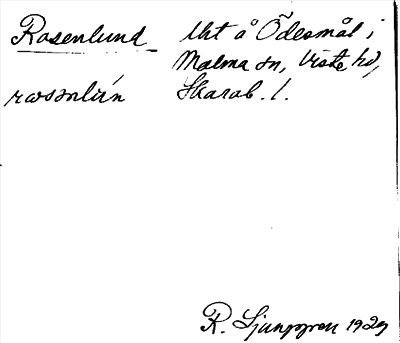 Rosenlund
Uht å Ödesmål i
Malma sn, Viste hd,
Skarab. l.
rosənlún
R. Ljunggren 1929